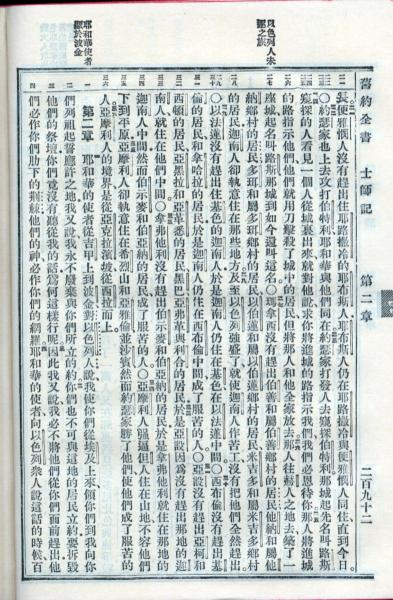 舊約全書 士師記 第二章 二百九十二
以色列人未
逐之族
長便雅憫人沒有趕出住耶路撒冷的耶布斯人耶布斯人仍在耶路撒冷與便雅憫人同住直到今日
〇約瑟家也上去攻打伯特利耶和華與他們同在約瑟家打發人去窺探伯特利那城起先名叫路斯
窺探的人看見一個人從城裏出來就對他說求你將進城的路指示我們我們必恩待你那人將進城
的路指示他們他們就用刀擊殺了城中的居民但將那人和他全家放去那人往赫人之地去築了一
座城起名叫路斯那城到如今還叫這名〇瑪拿西沒有趕出伯善和屬伯善鄉村的居民他納和屬他
納鄉村的居民多珥和屬多珥鄉村的居民以伯蓮和屬以伯蓮鄉村的居民米吉多和屬米吉多鄉村
的居民迦南人卻執意住在那些地方及至以色列強盛了就使迦南人作苦工沒有把他們全然趕出
〇以法蓮沒有趕出住基色的迦南人於是迦南人仍住在基色在以法蓮中間〇西布倫沒有趕出基
倫的居民和拿哈拉的居民於是迦南人仍住在西布倫中間成了服苦的人〇亞設沒有趕出亞柯和
西頓的居民亞黑拉和亞革悉的居民黑巴亞弗革與利合的居民於是亞設因爲沒有趕出那地的迦
南人就住在他們中間〇拿弗他利沒有趕出伯示麥和伯亞納的居民於是拿弗他利就住在那地的
迦南人中間然而伯示麥和伯亞納的居民成了服苦的人〇亞摩利人强逼但人住在山地不容他們
下到平原亞摩利人卻執意住在希烈山和亞雅倫並沙賓然而約瑟家勝了他們使他們成了服苦的
人亞摩利人的境界是從亞克拉濱坡從西拉而上
耶和華使者
顯於波金
第二章 耶和華的使者從吉甲上到波金對以色列人說我使你們從埃及上來領你們到我向你
們列祖起誓應許之地我又說我永不廢棄與你們所立的約你們也不可與這地的居民立約要拆毀
們的祭壇你們竟沒有聽從我的話爲何這樣行呢因此我又說我必不將他們從你們面前趕出他
們必作你們肋下的荆棘他們的神必作你們的網羅耶和華的使者向以色列衆人說這話的時候百